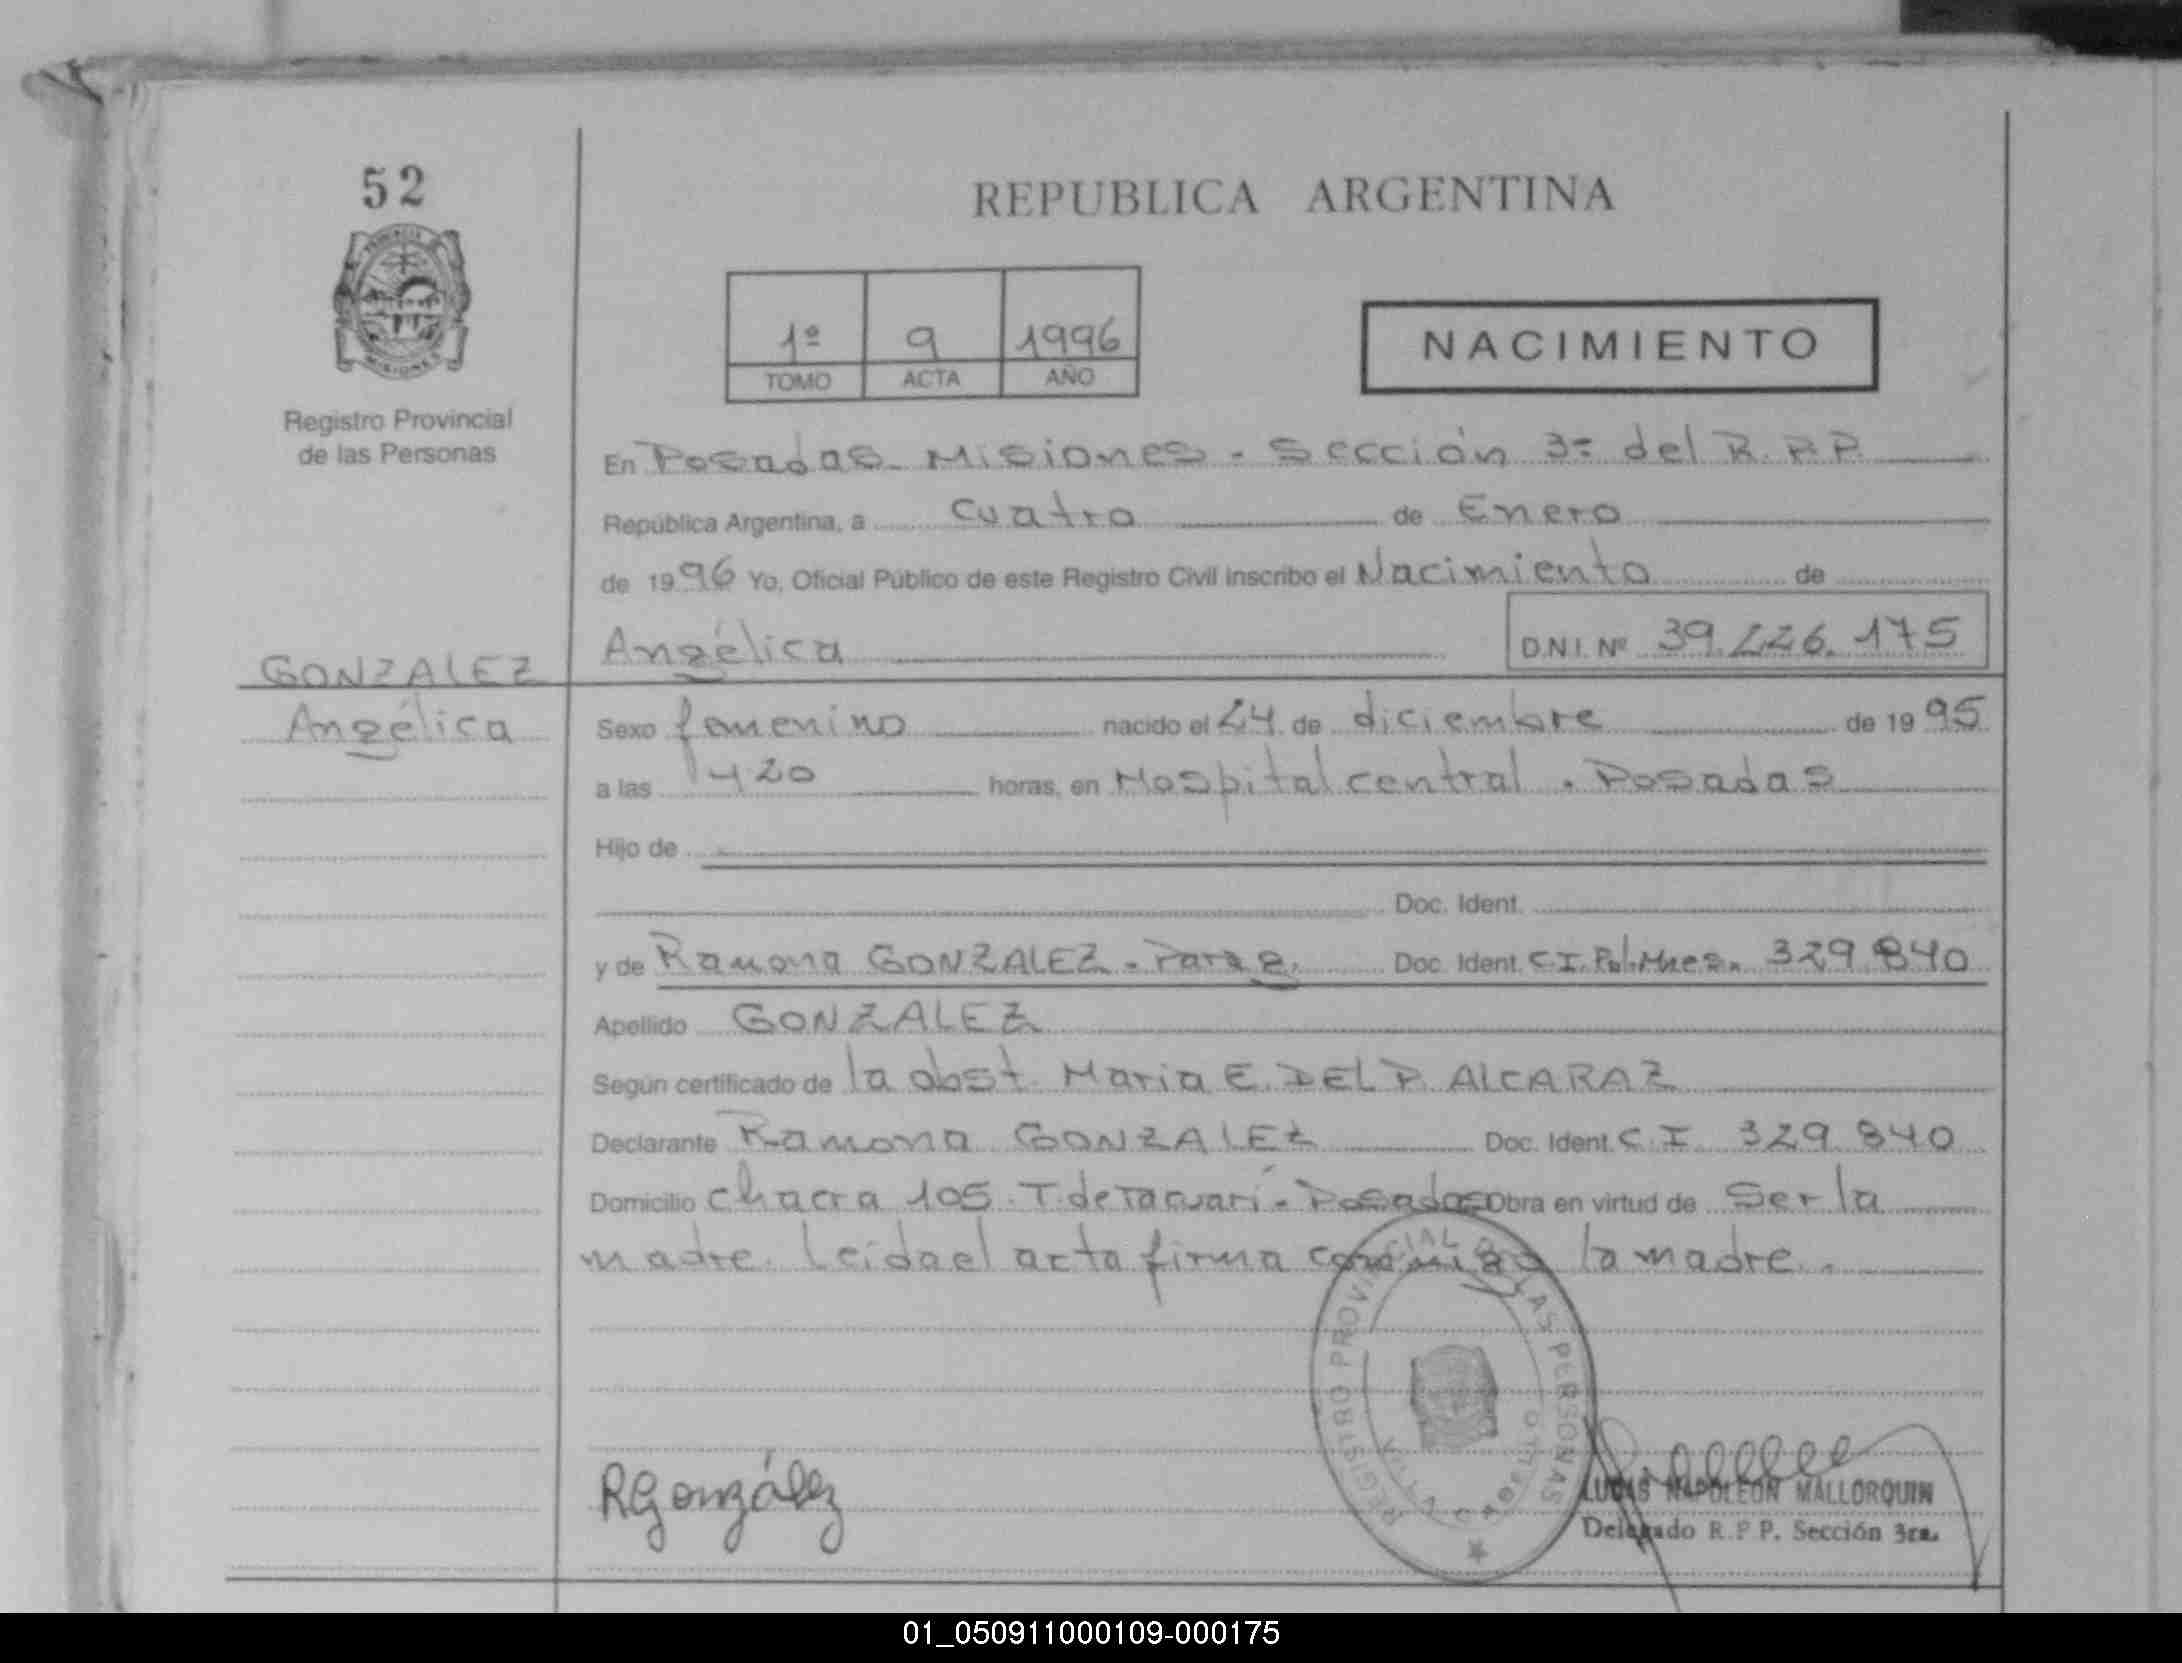 52
REPUBLICA ARGENTINA
1º 9 1996
TOMO ACTA AÑO
NACIMIENTO
Registro Provincial
de las Personas
En Posadas. Misiones. Sección 3= del R. P. P.
República Argentina, a cuatro de Enero
de 1996 Yo, Oficial Público de este Registro Civil inscribo el Nacimiento de
Angélica D.N.I. Nº 39.226.175
GONZALEZ
Angélica
Sexo femenino nacido el 24 de diciembre de 1995
a las 420 horas, en Hospital central. Posadas
Hijo de
Doc. Ident.
y de Ramona GONZALEZ. Parag. Doc. Ident. C.I. Pol. Mnes. 329 840
Apellido GONZALEZ
Según certificado de la obst. Maria E. DEL P. ALCARAZ
Declarante Ramona GONZALEZ Doc. Ident. C. I 329 840
Domicilio chacra 105. T. de Tacuarí. Posadas Obra en virtud de Ser la
madre. leida el acta firma conmigo la madre.
REGISTRO PROVINCIAL DE LAS PERSONAS
RGonzález
LUCAS NAPOLEON MALLORQUIN
Delegado R. P P. Sección 3ra.
01_050911000109-000175